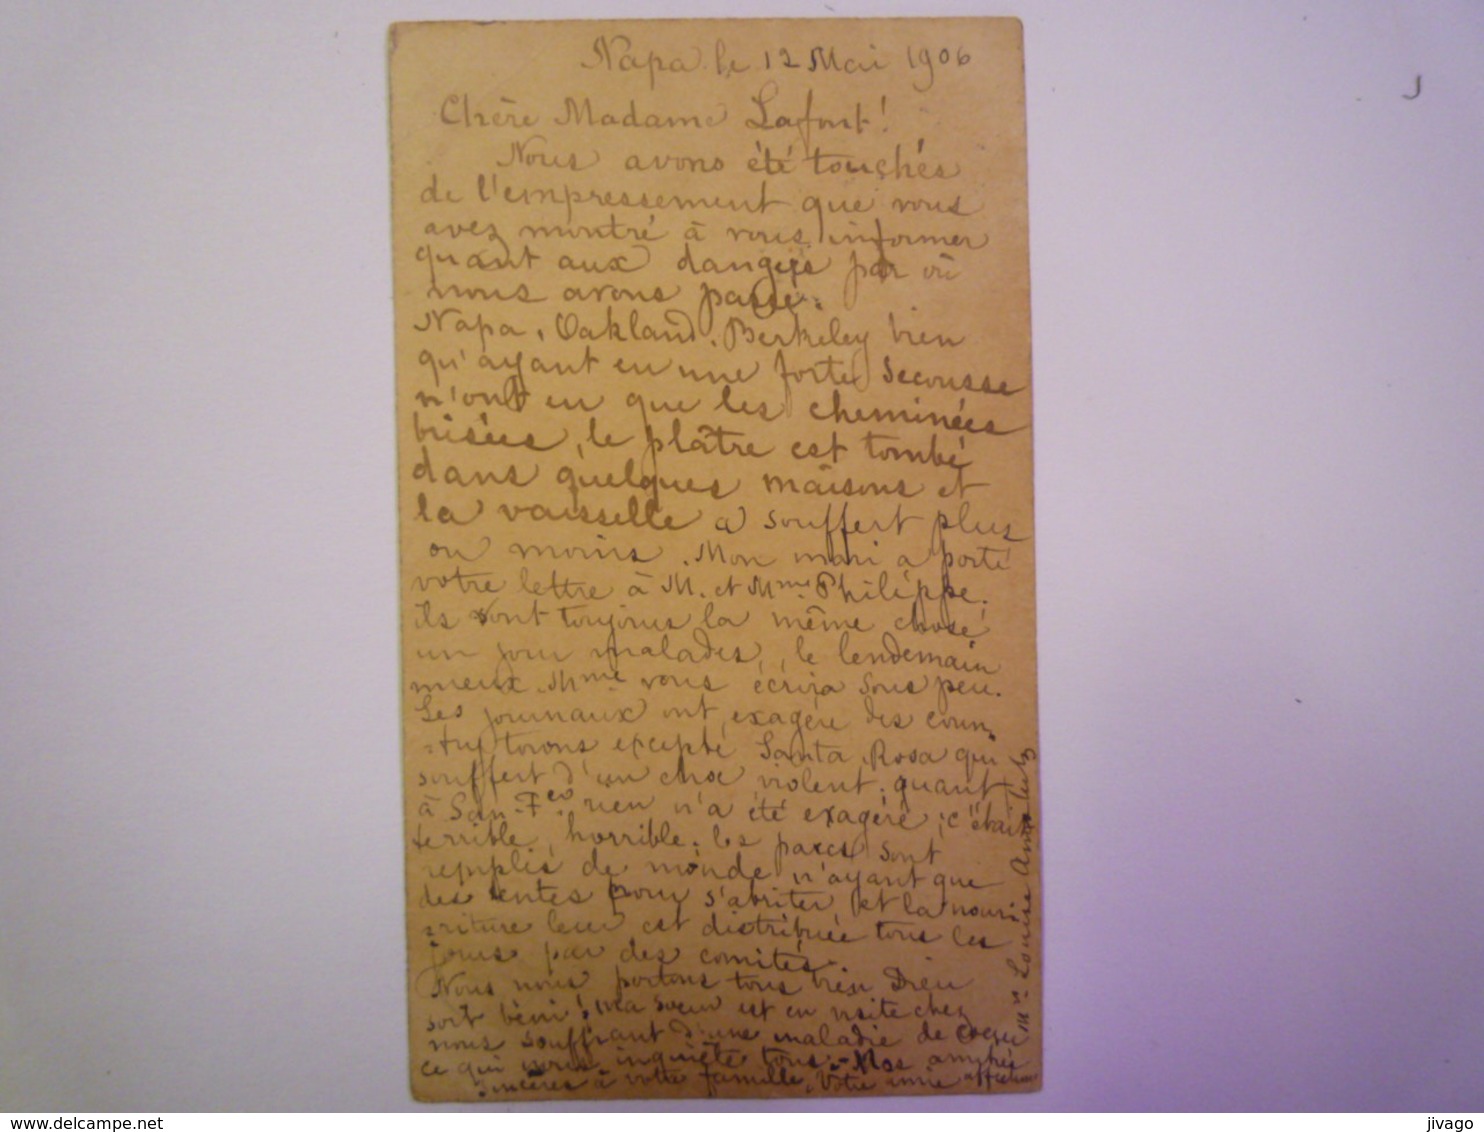 Napa le 12 Mai 1906
Chère Madame Lafont!
Nous avons été touchés
de l'empressement que vous
avez montré à vous informer
quant aux dangers par où
nous avons passé.
Napa, Oakland, Berkeley bien
qu'ayant eu une forte secousse
n'ont eu que les cheminées
brisées, le plâtre est tombé
dans quelques maisons et
la vaisselle a souffert plus
ou moins. Mon mari a porté
votre lettre à M. et Mme Philippe.
ils sont toujours la même chose
un jour malades, le lendemain
mieux. Mme vous écrira sous peu.
Les journaux ont exagéré des coun-
-try towns excepté Santa Rosa qui
souffert d'un choc violent. quant
à San Fco rien n'a été exagéré; c'était
terrible, horrible; les parcs sont
remplis de monde n'ayant que
des tentes pour s'abriter et la nour-
-riture leur est distribuée tous les
jours par des comités.
Nous nous portons tous bien Dieu
soit béni! ma soeur est en visite chez
nous souffrant d'une maladie de coeur
ce qui nous inquiète tous. Nos amitiés
sincères à votre famille, Votre amie affectueuse
Mme Louise
jivago